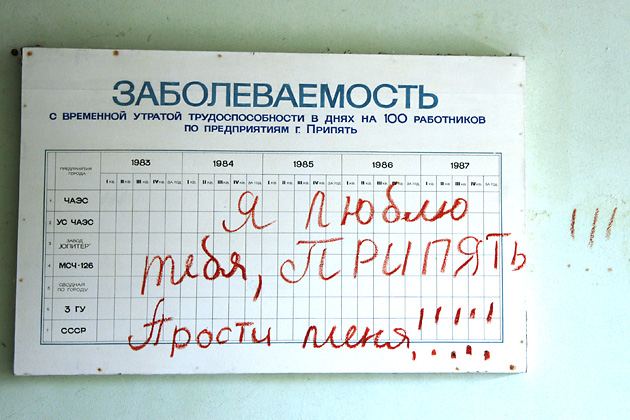 ЗАБОЛЕВАЕМОСТЬ
С ВРЕМЕННОЙ УТРАТОЙ ТРУДОСПОСОБНОСТИ В ДНЯХ НА 100 РАБОТНИКОВ
ПО ПРЕДПРИЯТИЯМ Г. ПРИПЯТЬ
ПРЕДПРИЯТИЯ ГОРОДА 1983 1984 1985 1986 1987
I КВ. II КВ. III КВ. IV КВ. ЗА ГОД I КВ. II КВ. III КВ. IV КВ. ЗА ГОД I КВ. II КВ. III КВ. IV КВ. ЗА ГОД I КВ. II КВ. III КВ. IV КВ. ЗА ГОД I КВ. II КВ. III КВ. IV КВ. ЗА ГОД
1 ЧАЭС
2 УС ЧАЭС
3 ЗАВОД „ЮПИТЕР"
4 МСЧ-126
5 СВОДНАЯ ПО ГОРОДУ
6 3 ГУ
7 СССР
Я люблю
тебя, ПРИПЯТЬ !!!
Прости меня, !!!!!